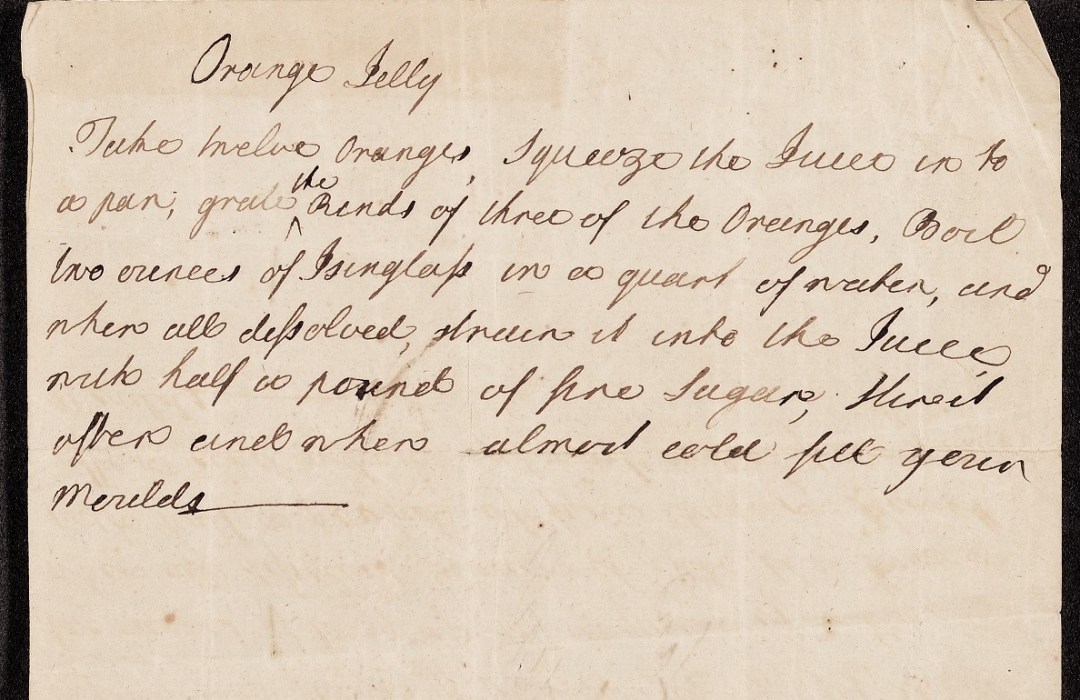 Orange Jelly
Take twelve Oranges, Squeeze the Juice in to
a pan, grate the Rinds of three of the Oranges, Boil
two ounces of Isinglass in a quart of water, and
when all dissolved, strain it into the Juice,
with half a pound of fine Sugar, Stir it
often and when almost cold fill your
Moulds